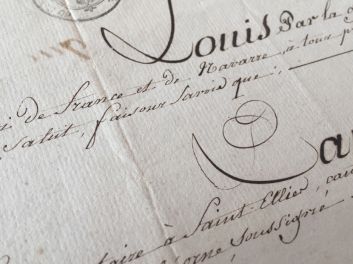 Louis Par la g
de France et de Navarre, à tous p
Salut, faisons Savoir que :
Ca
taire à Saint Ellier, can
soussigné